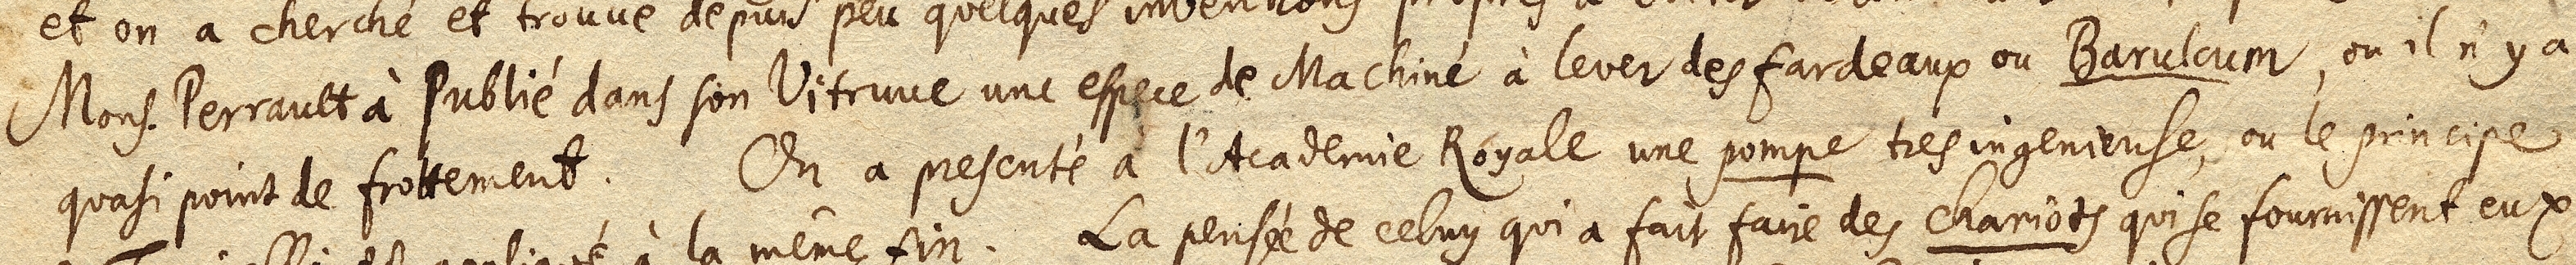 et on a cherché et trouvé depuis peu quelques inventions propres à
Mons. Perrault à Publié dans son Vitruve une espece de Machine à lever des fardeaux ou Barulcum, ou il n'y a
quasi point de frottement. On a presenté à l'Academie Royale une pompe tres ingenieuse, ou le principe
appliqué à la même fin. La pensée de celuy qui a fait faire des chariots qui se fournissent eux